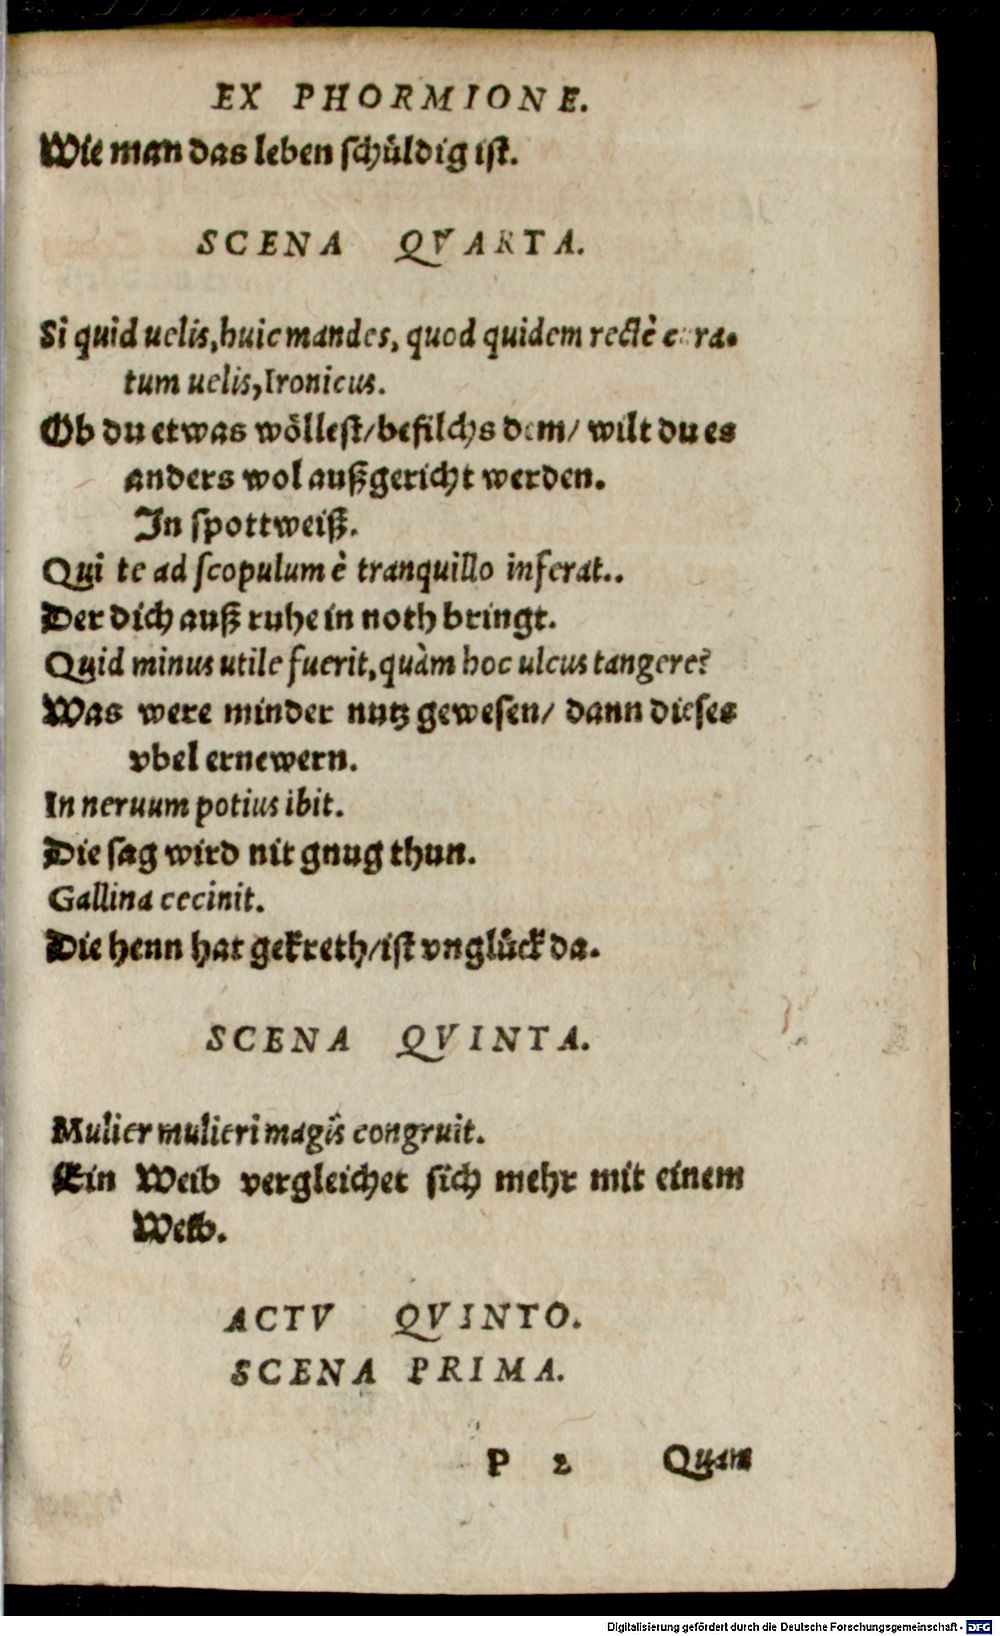 EX PHORMIONE.
Wie man das leben schüldig ist.
SCENA QVARTA.
Si quid uelis, huic mandes, quod quidem rectè cura-
tum uelis, Ironicus.
Ob du etwas wöllest/ befilchs dem/ wilt du es
anders wol außgericht werden.
In spottweiß.
Qui te ad scopulum è tranquillo inferat..
Der dich auß ruhe in noth bringt.
Quid minus utile fuerit, quàm hoc ulcus tangere?
Was were minder nutz gewesen/ dann dieses
vbel ernewern.
In neruum potius ibit.
Die sag wird nit gnug thun.
Gallina cecinit.
Die henn hat gekreth/ ist vnglück da.
SCENA QVINTA.
Mulier mulieri magis congruit.
Ein Weib vergleichet sich mehr mit einem
Weib.
ACTV QVINTO.
SCENA PRIMA.
P 2 Quam
Digitalisierung gefördert durch die Deutsche Forschungsgemeinschaft - DFG